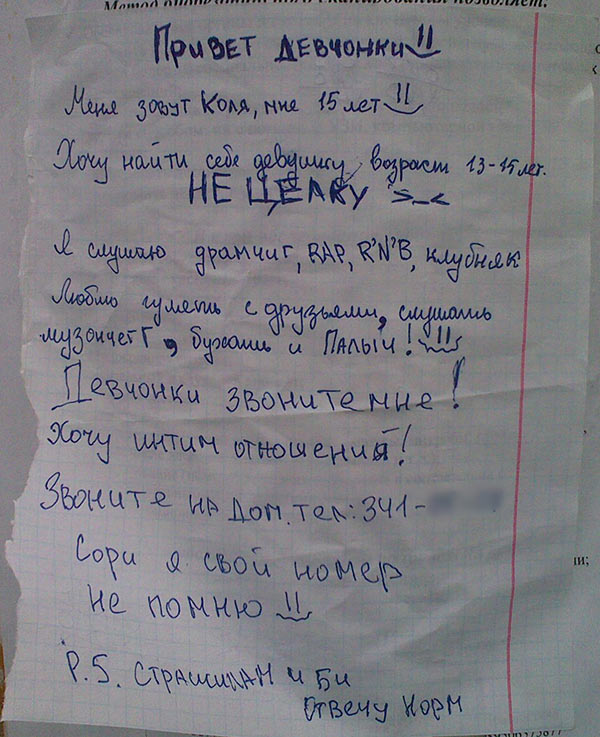 Метод
сканирования позволяет.
Привет девчонки
Меня зовут Коля, мне 15 лет
Хочу найти себе девушку, возраст 13-15 лет.
НЕ ЦЕЛКУ >_<
Я слушаю драмчиг, RAP, R'N'B, клубняк
Люблю гулять с друзьями, слушать
музончег, бухать и ПАЛЫЧ!
Девчонки звоните мне!
Хочу интим отношений!
Звоните на дом. тел: 341-
Сори я свой номер
не помню
P.S. СТРАШИЛАМ и Би
отвечу норм